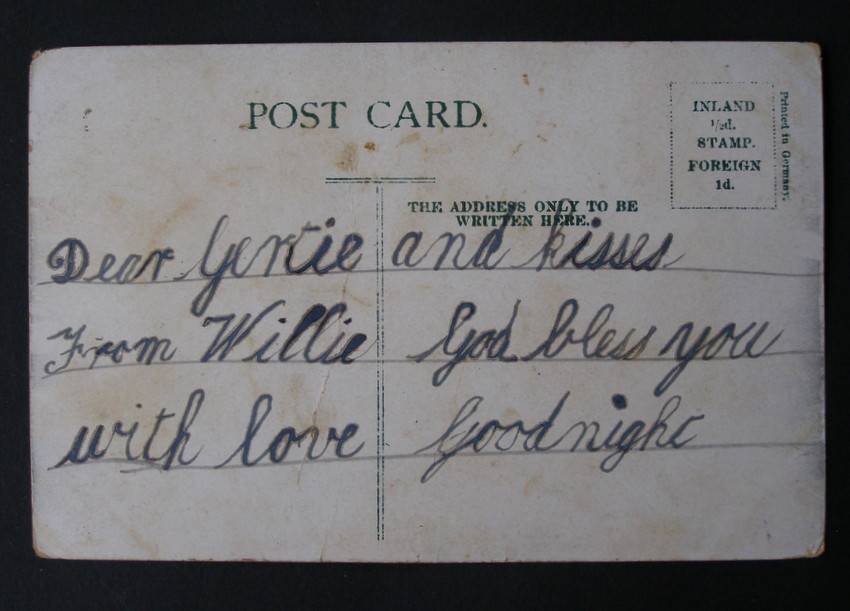 POST CARD.
INLAND
½d.
STAMP.
FOREIGN
1d.
Printed in Germany.
THE ADDRESS ONLY TO BE
WRITTEN HERE.
Dear Gertie
From Willie
with love
and kisses
God bless you
Goodnight